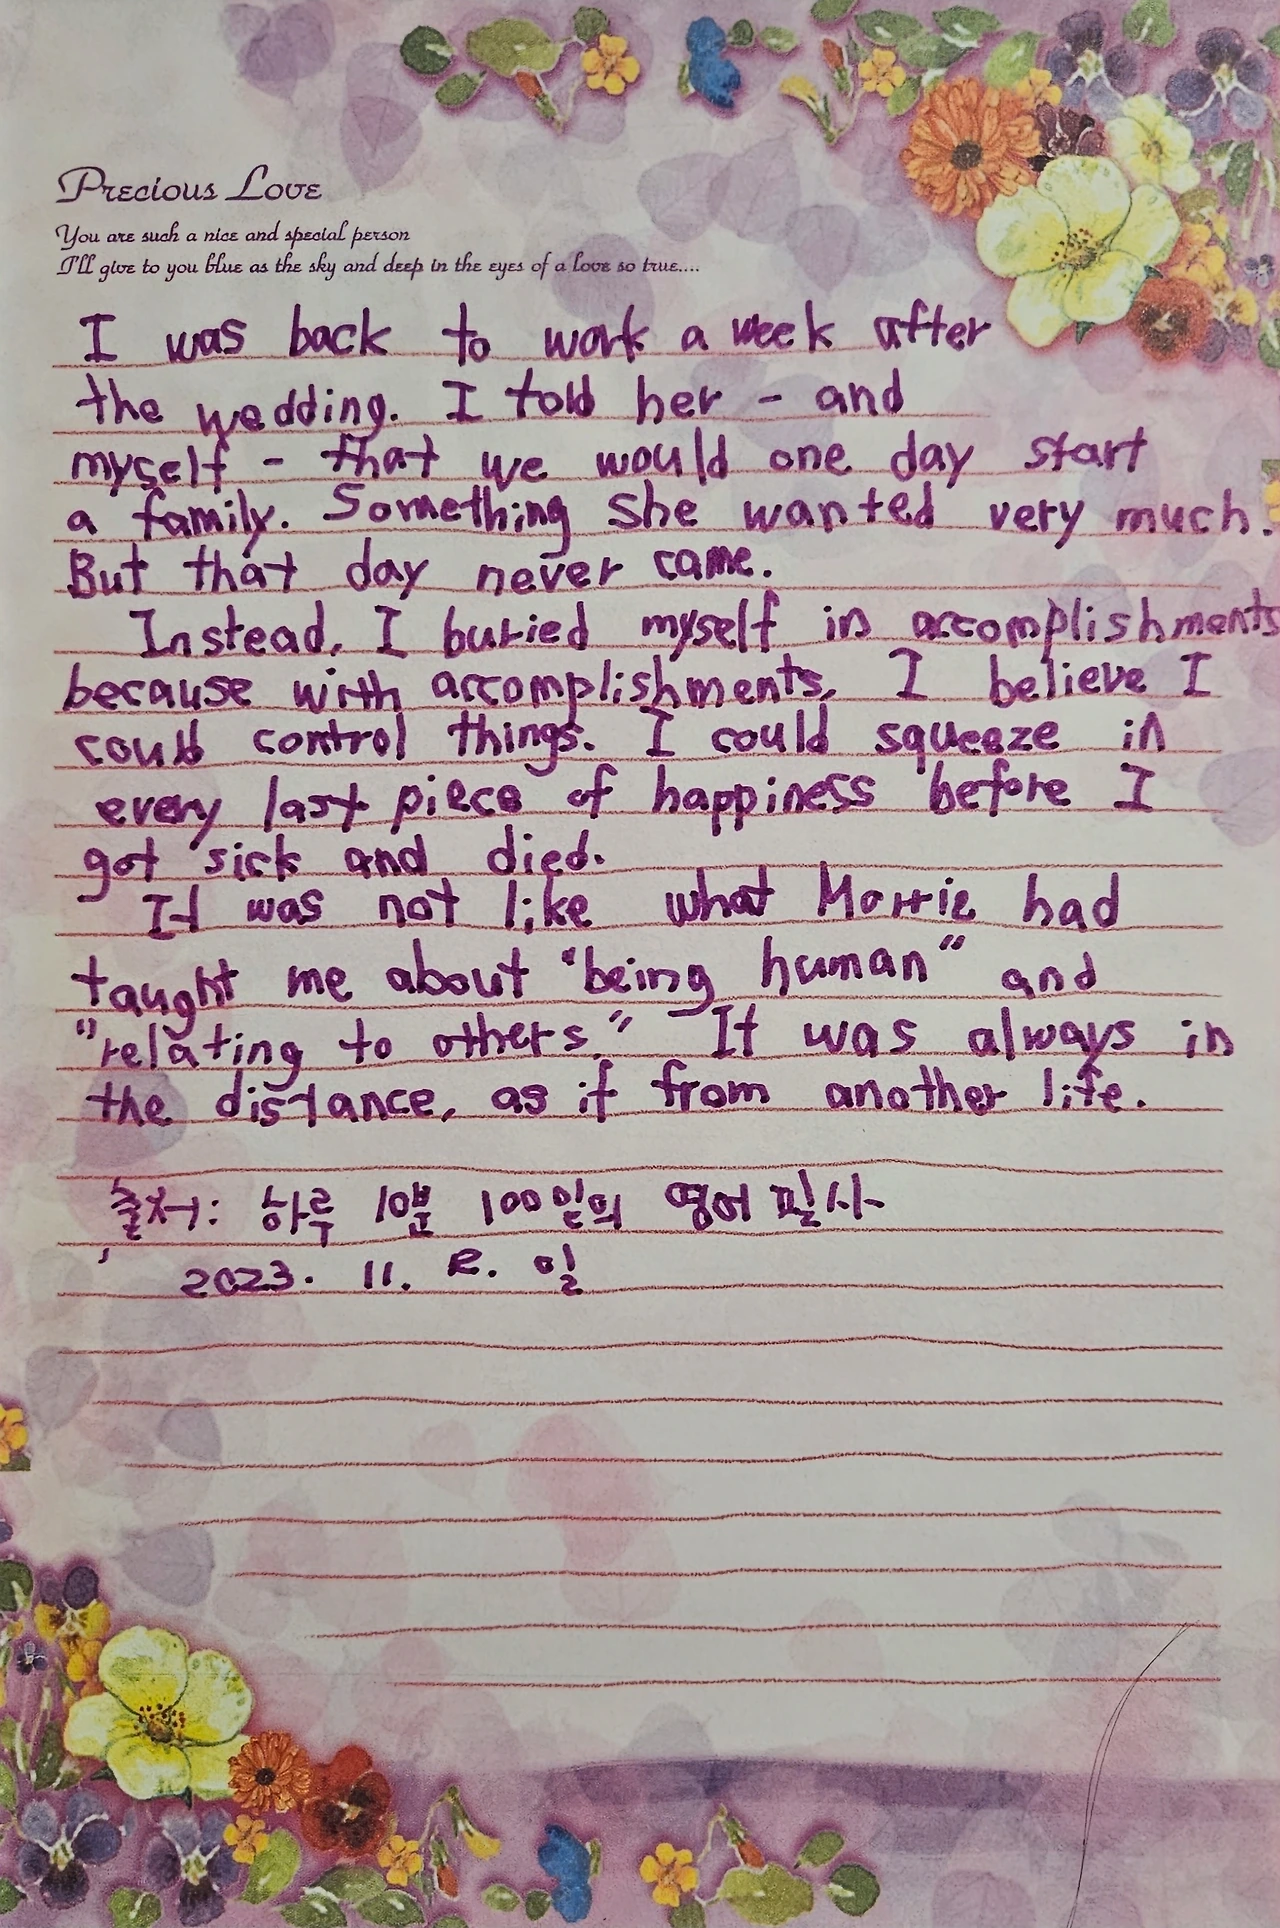 Precious Love
You are such a nice and special person
I'll give to you blue as the sky and deep in the eyes of a love so true....
I was back to work a week after
the wedding. I told her - and
myself - that we would one day start
a family. Something she wanted very much.
But that day never came.
Instead, I buried myself in accomplishments
because with accomplishments, I believe I
could control things. I could squeeze in
every last piece of happiness before I
got sick and died.
It was not like what Morrie had
taught me about "being human" and
"relating to others." It was always in
the distance, as if from another life.
출처: 하루 10분 100일의 영어 필사
2023. 11. 일